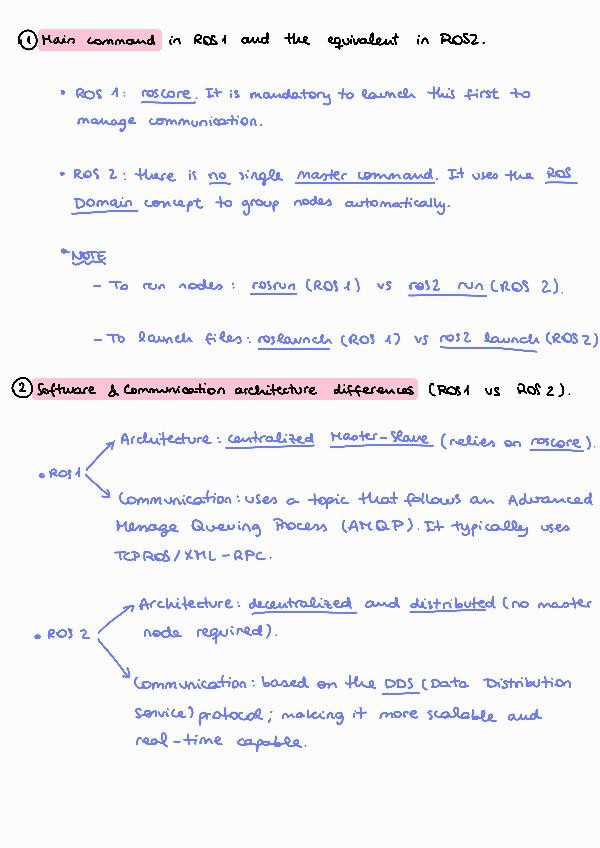 ① Main command in ROS1 and the equivalent in ROS2.
• ROS 1: roscore. It is mandatory to launch this first to
manage communication.
• ROS 2: there is no single master command. It uses the ROS
Domain concept to group nodes automatically.
*NOTE
- To run nodes: rosrun (ROS 1) vs ros2 run (ROS 2).
- To launch files: roslaunch (ROS 1) vs ros2 launch (ROS 2)
② Software & Communication architecture differences (ROS1 vs ROS 2).
Architecture: centralized Master-Slave (relies on roscore).
• ROS 1
Communication: uses a topic that follows an Advanced
Message Queuing Process (AMQP). It typically uses
TCPROS/XML-RPC.
Architecture: decentralized and distributed (no master
• ROS 2
node required).
Communication: based on the DDS (Data Distribution
Service) protocol; making it more scalable and
real-time capable.